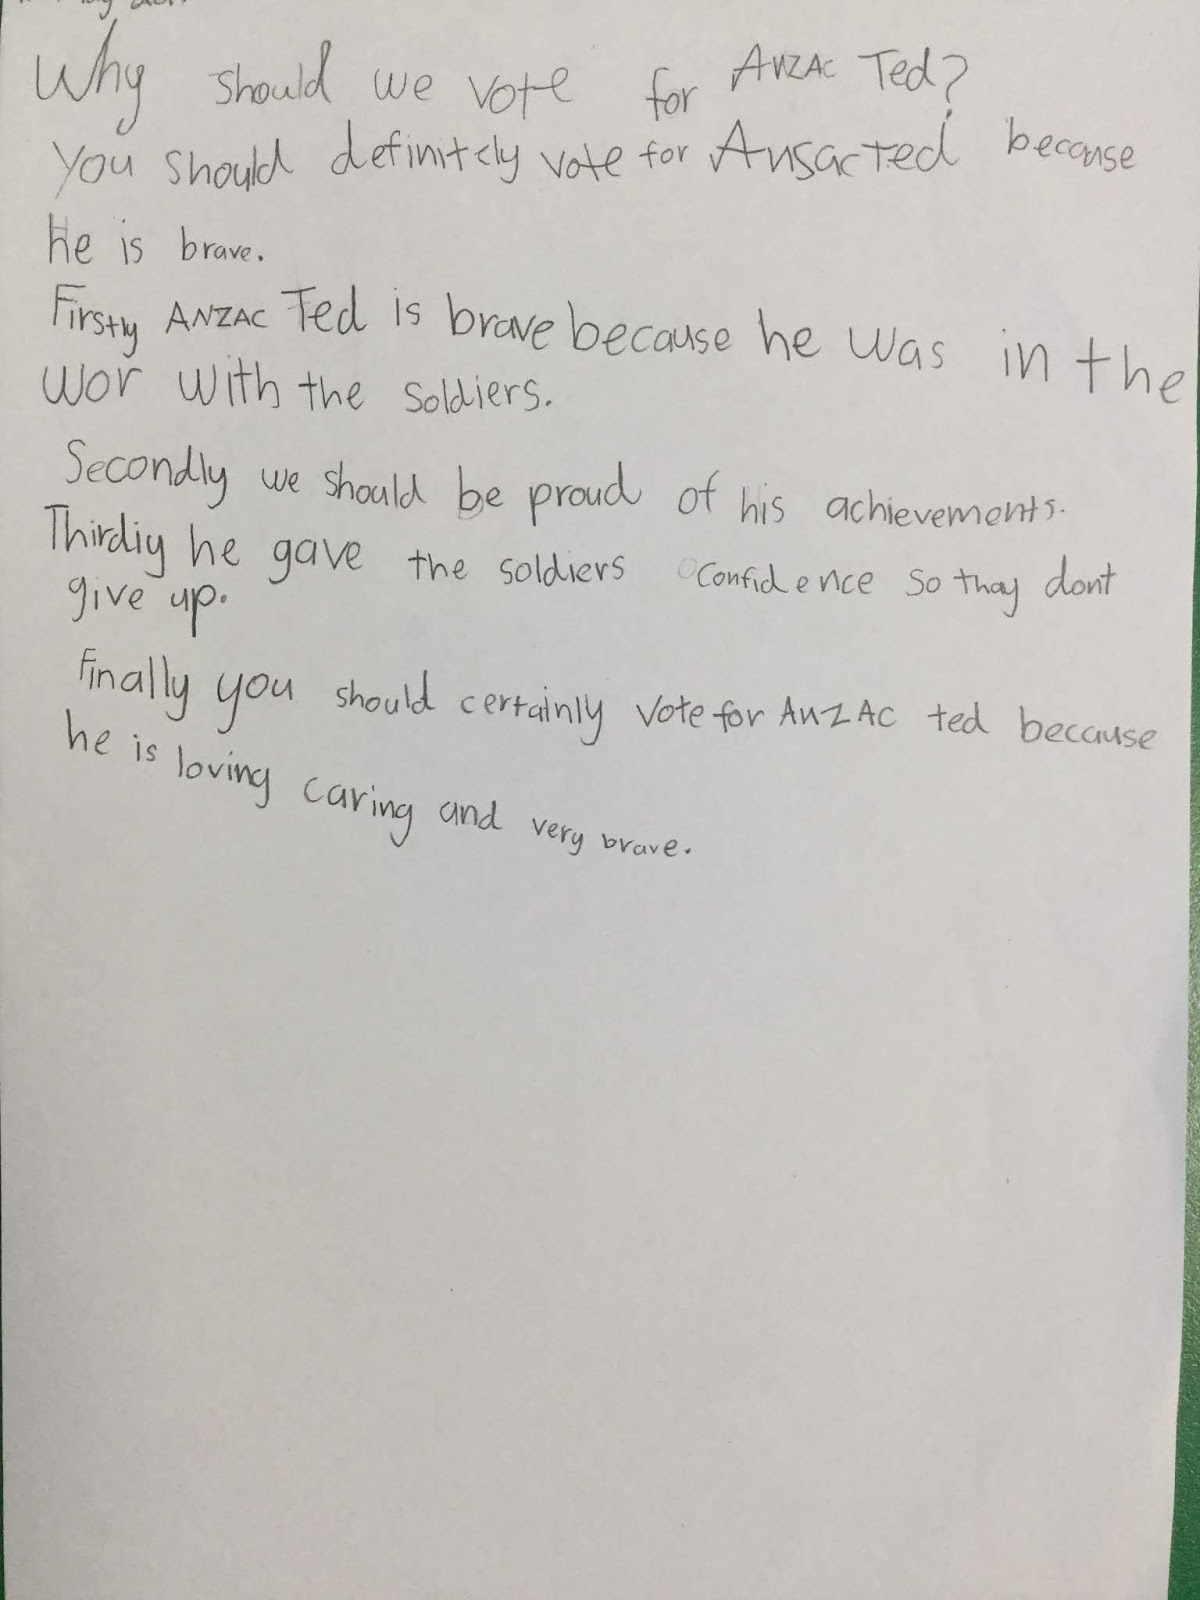 Why should we vote for ANZAC Ted?
You should definitely vote for Ansac Ted because
he is brave.
Firstly ANZAC Ted is brave because he was in the
wor with the soldiers.
Secondly we should be proud of his achievements.
Thirdiy he gave the soldiers confidence so thay dont
give up.
Finally you should certainly vote for ANZAC ted because
he is loving caring and very brave.